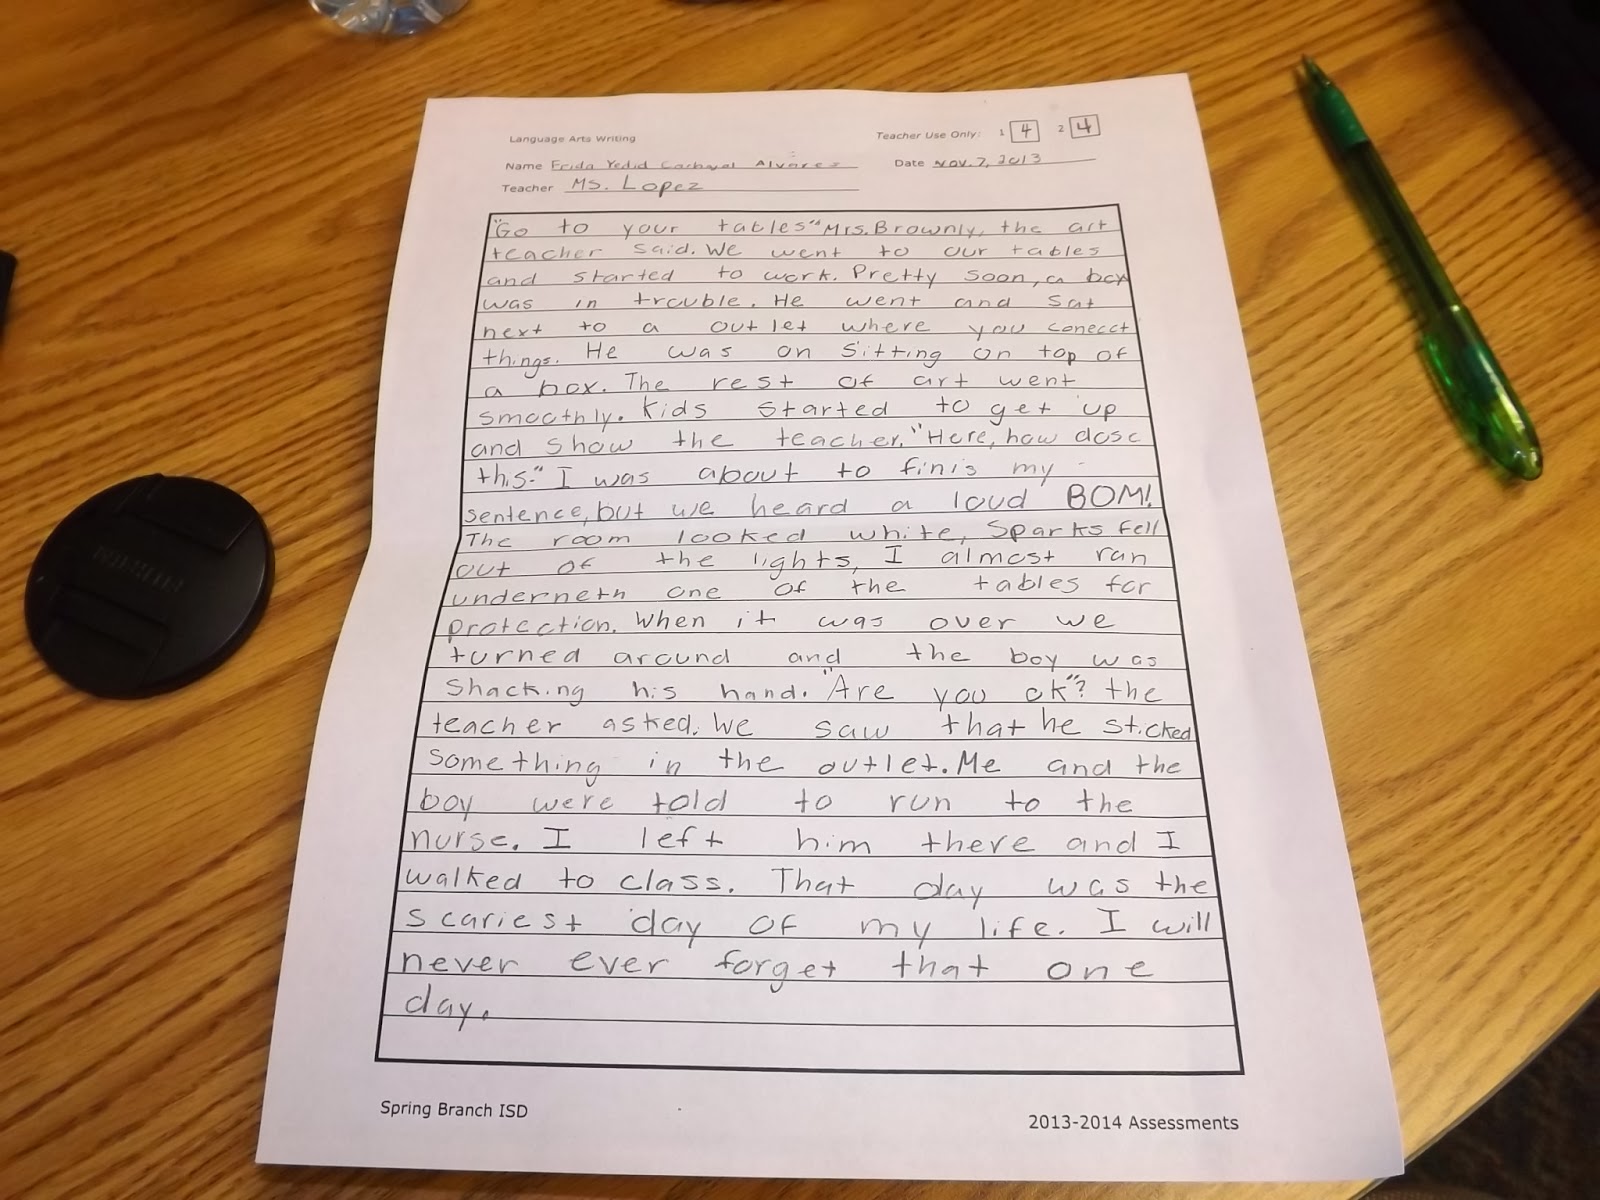 Language Arts Writing
Teacher Use Only: 1 4 2 4
Name Erida Yedid Alvarez
Date Nov. 7, 2013
Teacher Ms. Lopez
"Go to your tables" Mrs. Brownly, the art
teacher said. We went to our tables
and started to work. Pretty soon, a boy
was in trouble. He went and sat
next to a outlet where you conecct
things. He was on sitting on top of
a box. The rest of art went
smoothly. Kids started to get up
and show the teacher. "Here, how dose
this." I was about to finis my
sentence, but we heard a loud BOM!
The room looked white, Sparks fell
out of the lights, I almost ran
underneth one of the tables for
protection. When it was over we
turned around and the boy was
shacking his hand. "Are you ok"? the
teacher asked. We saw that he sticked
something in the outlet. Me and the
boy were told to run to the
nurse. I left him there and I
walked to class. That day was the
scariest day of my life. I will
never ever forget that one
day.
Spring Branch ISD
2013-2014 Assessments